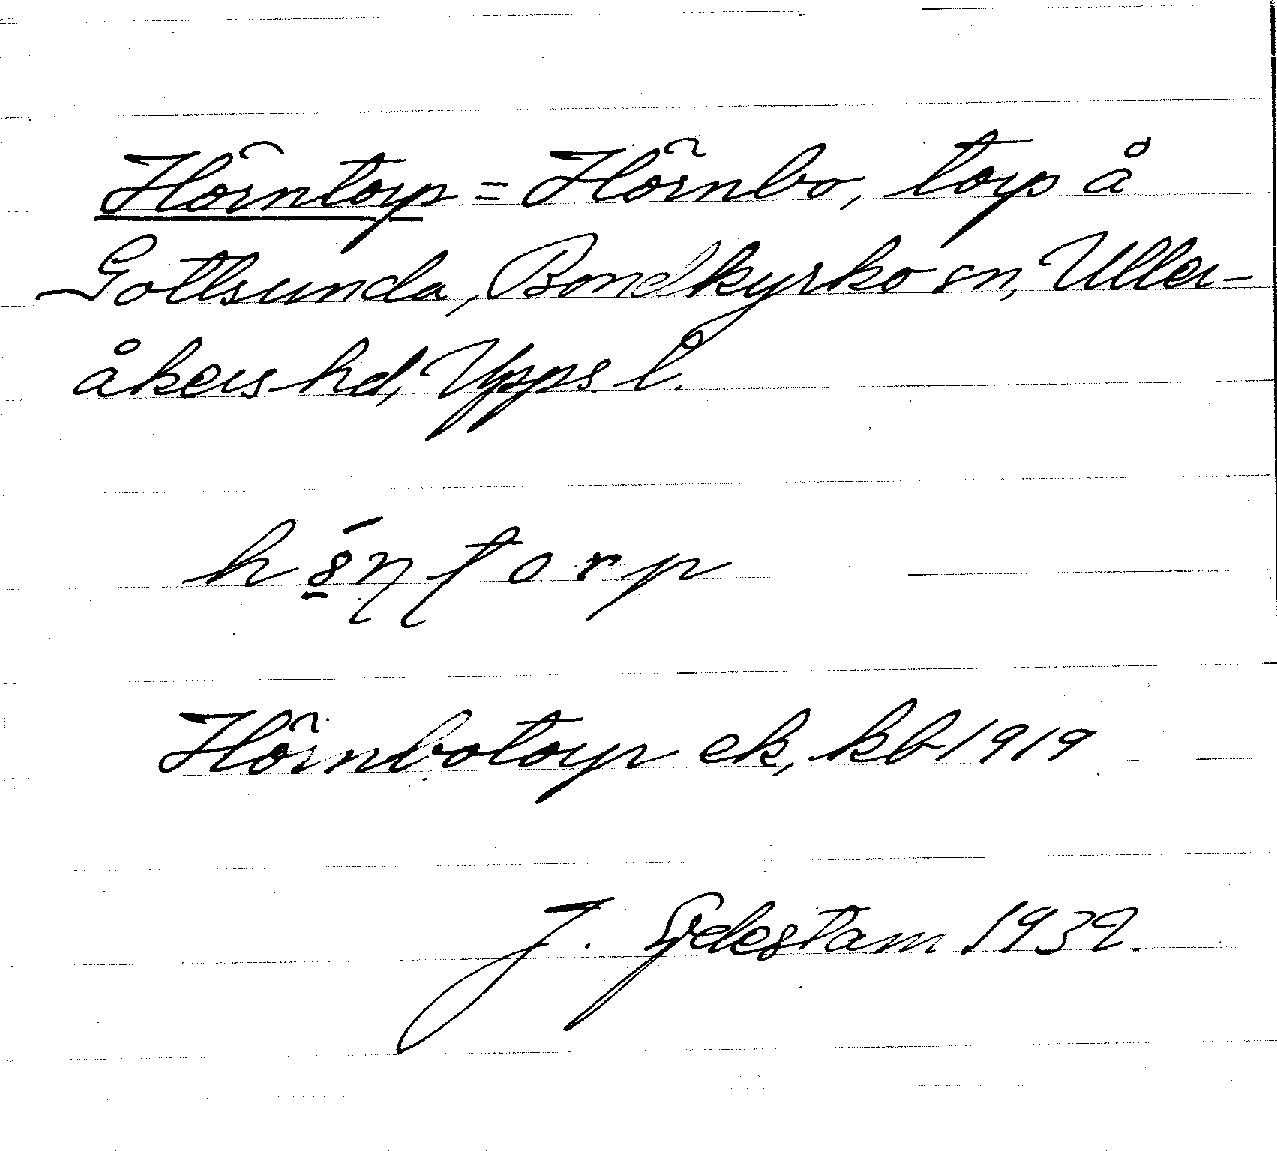 Hörntorp = Hörnbo, torp å
Gottsunda, Bondkyrko sn, Uller-
åkers hd, Upps l.
törp
Hörnbotorp ek, kb 1919
J. 1939.